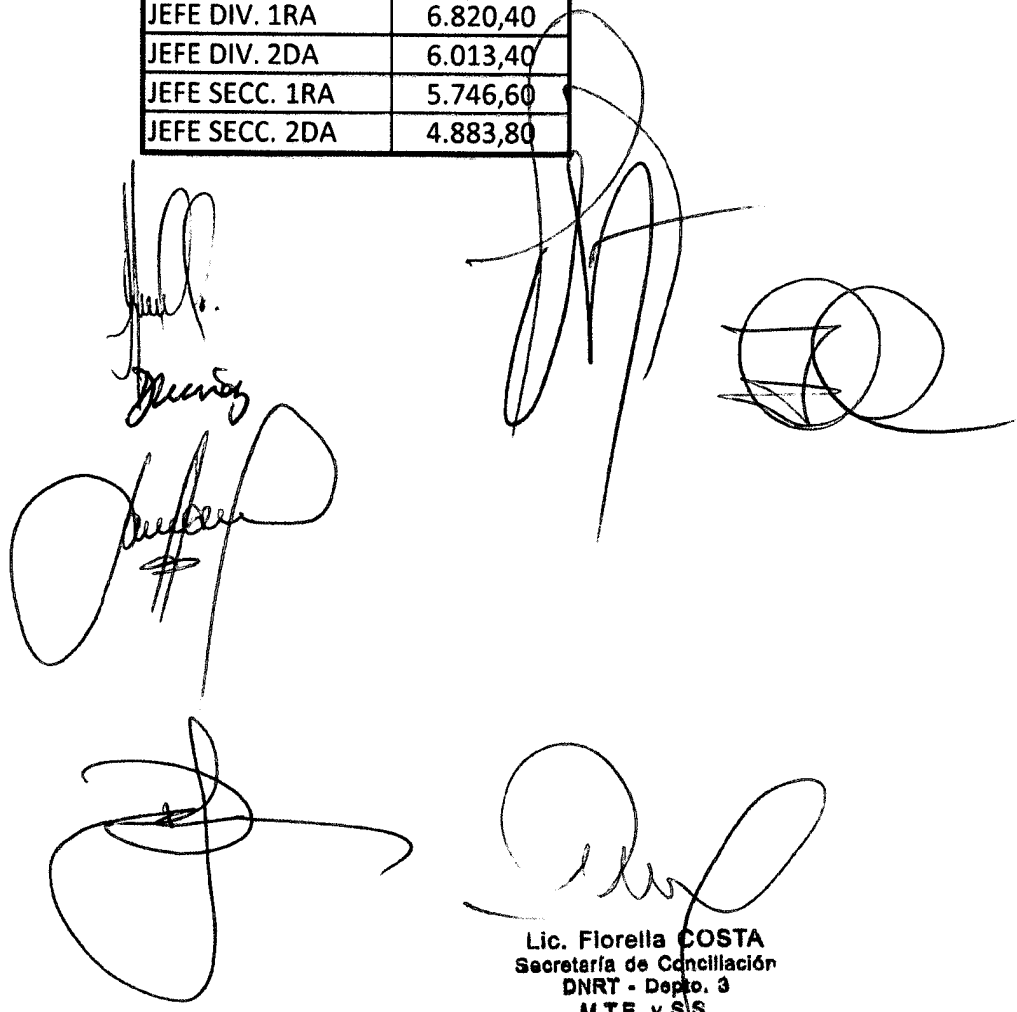 JEFE DIV. 1RA 6.820,40
JEFE DIV. 2DA 6.013,40
JEFE SECC. 1RA 5.746,60
JEFE SECC. 2DA 4.883,80
Lic. Fiorella COSTA
Secretaría de Conciliación
DNRT - Depto. 3
M.T.E. y S.S.